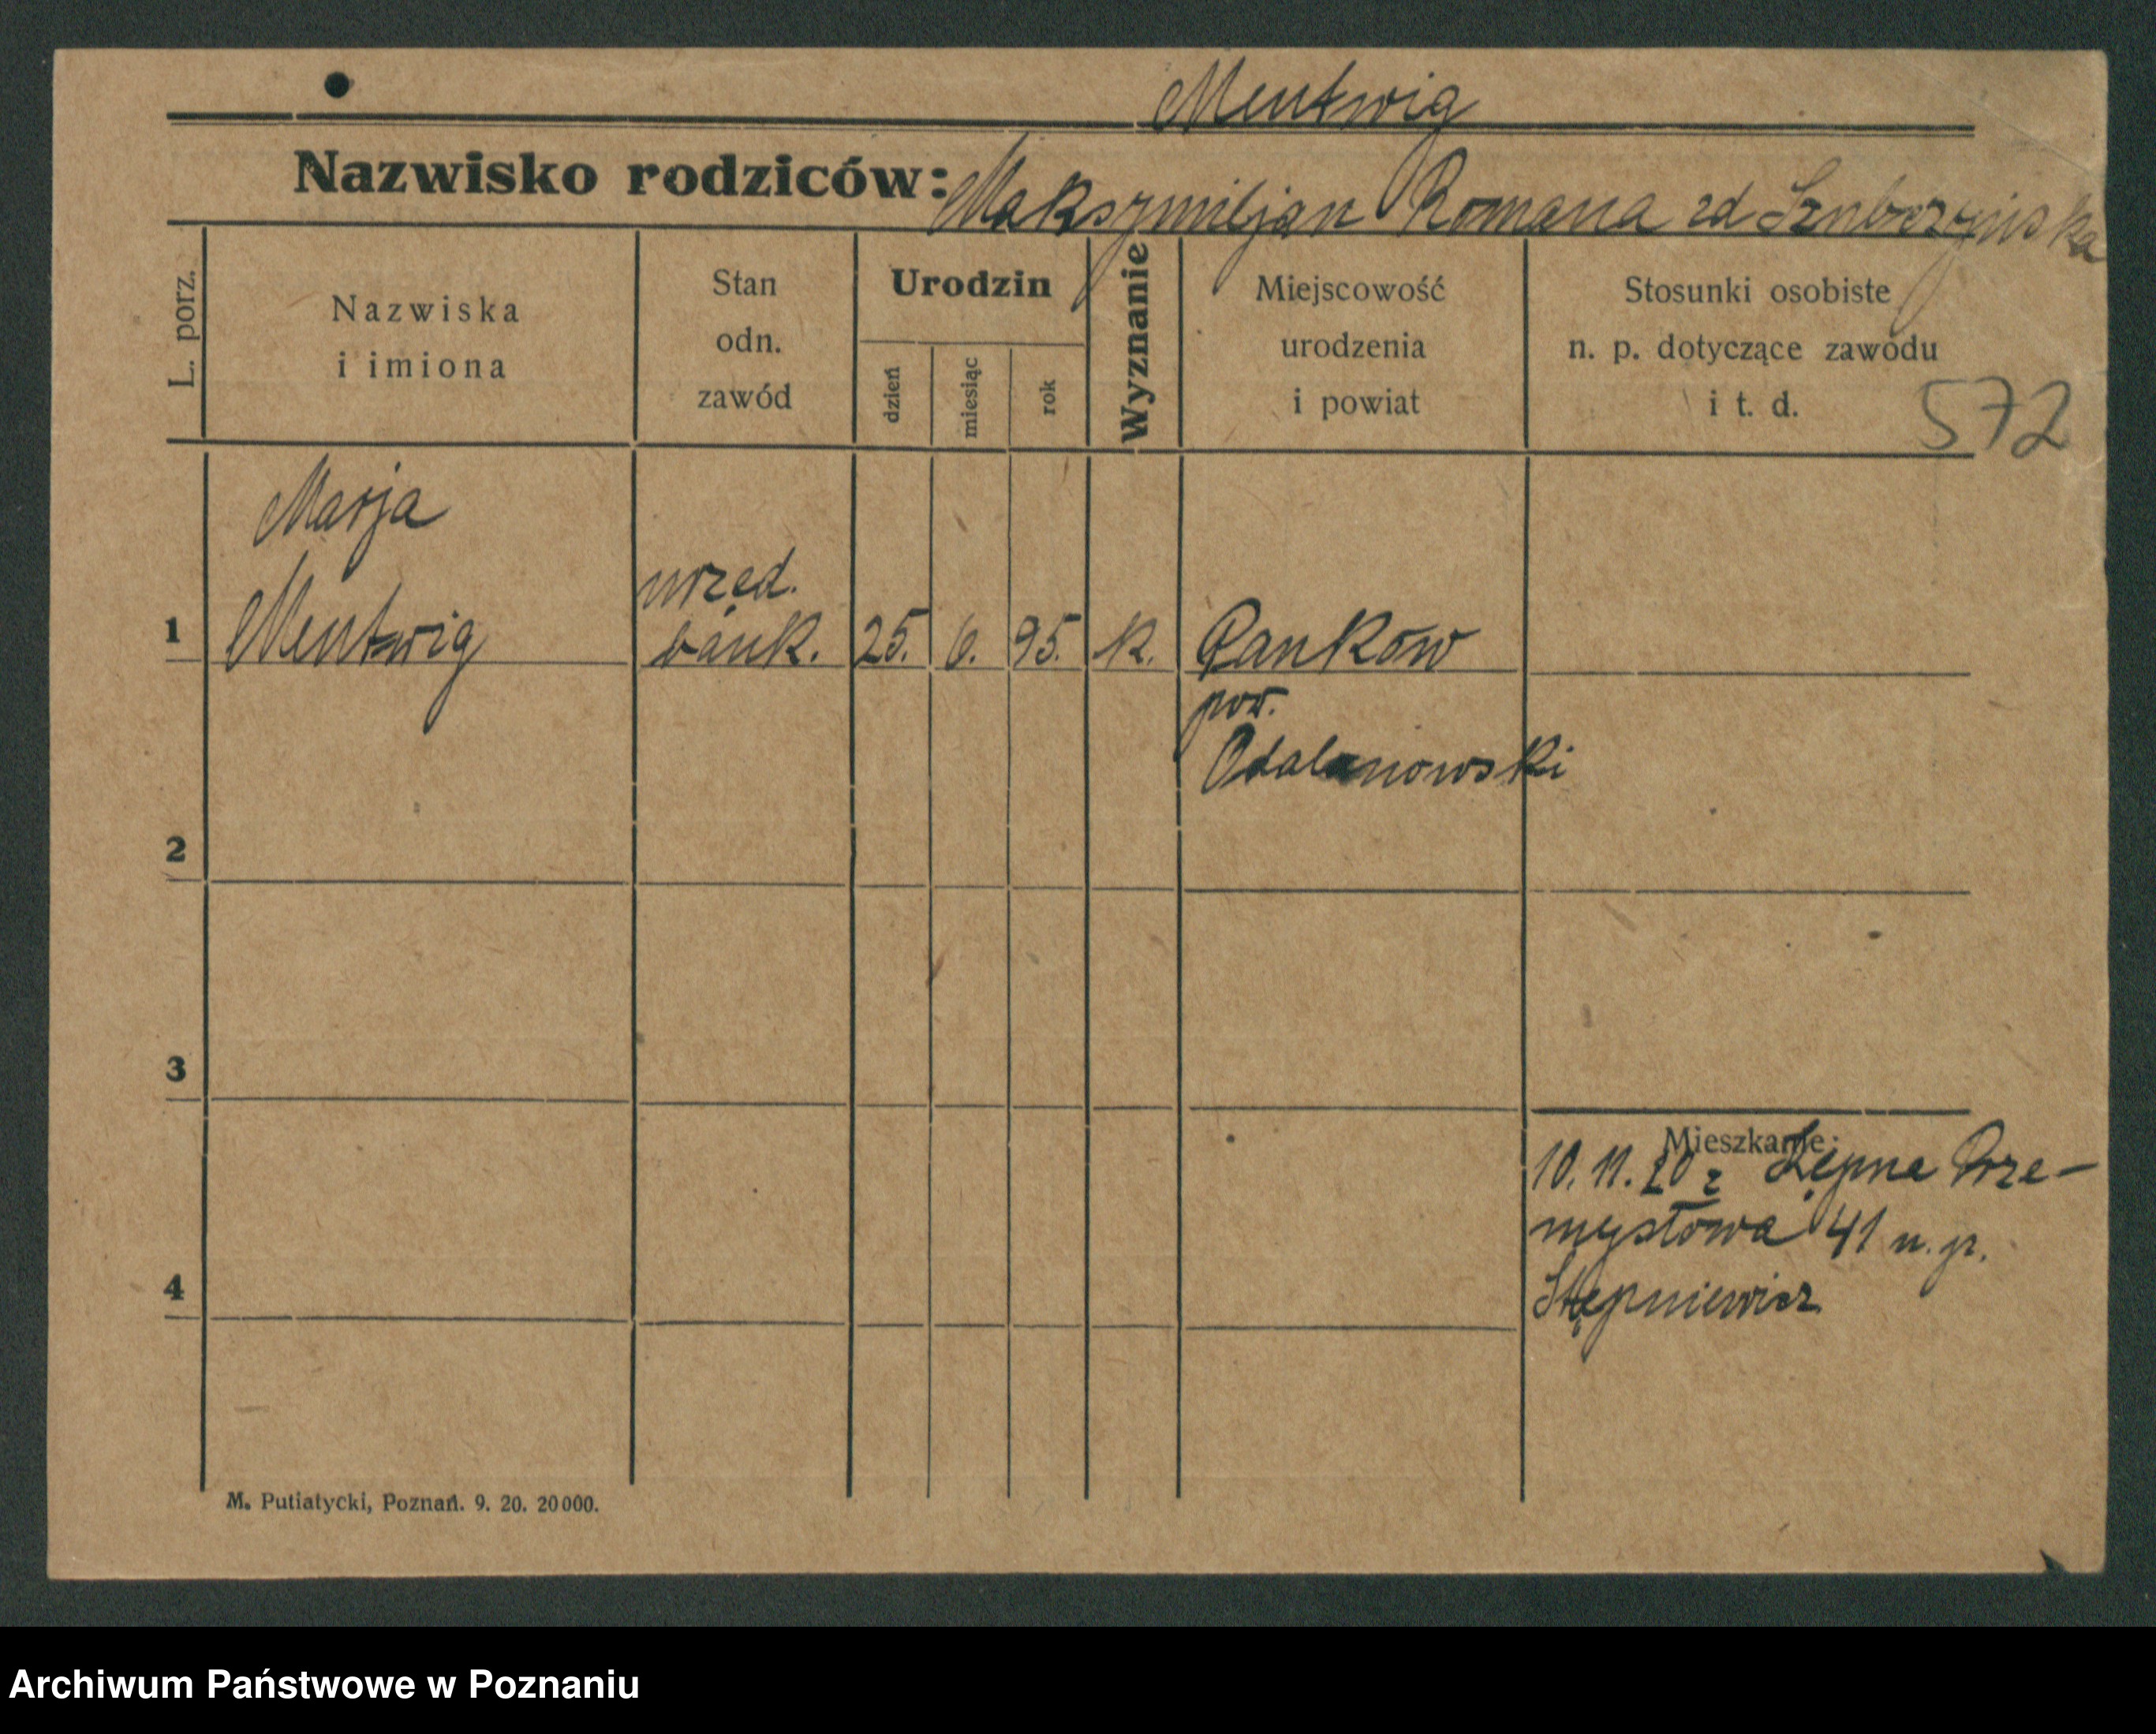 Mentwig
Nazwisko rodziców: Maksymiljan Romana zd
L. porz.
Nazwiska
i imiona
Stan
odn.
zawód
Urodzin
dzień
miesiąc
rok
Wyznanie
Miejscowość
urodzenia
i powiat
Stosunki osobiste
n. p. dotyczące zawodu
i t. d.
572
Marja
1 Mentwig
urzęd.
bank. 25. 6. 95. K.
pow.
Odalanowski
2
3
4
Mieszkanie:
10. 11. 20 z Kępna Prze-
mysłowa 41 u. p.
Stępniewicz
M. Putiatycki, Poznań. 9. 20. 20000.
Archiwum Państwowe w Poznaniu